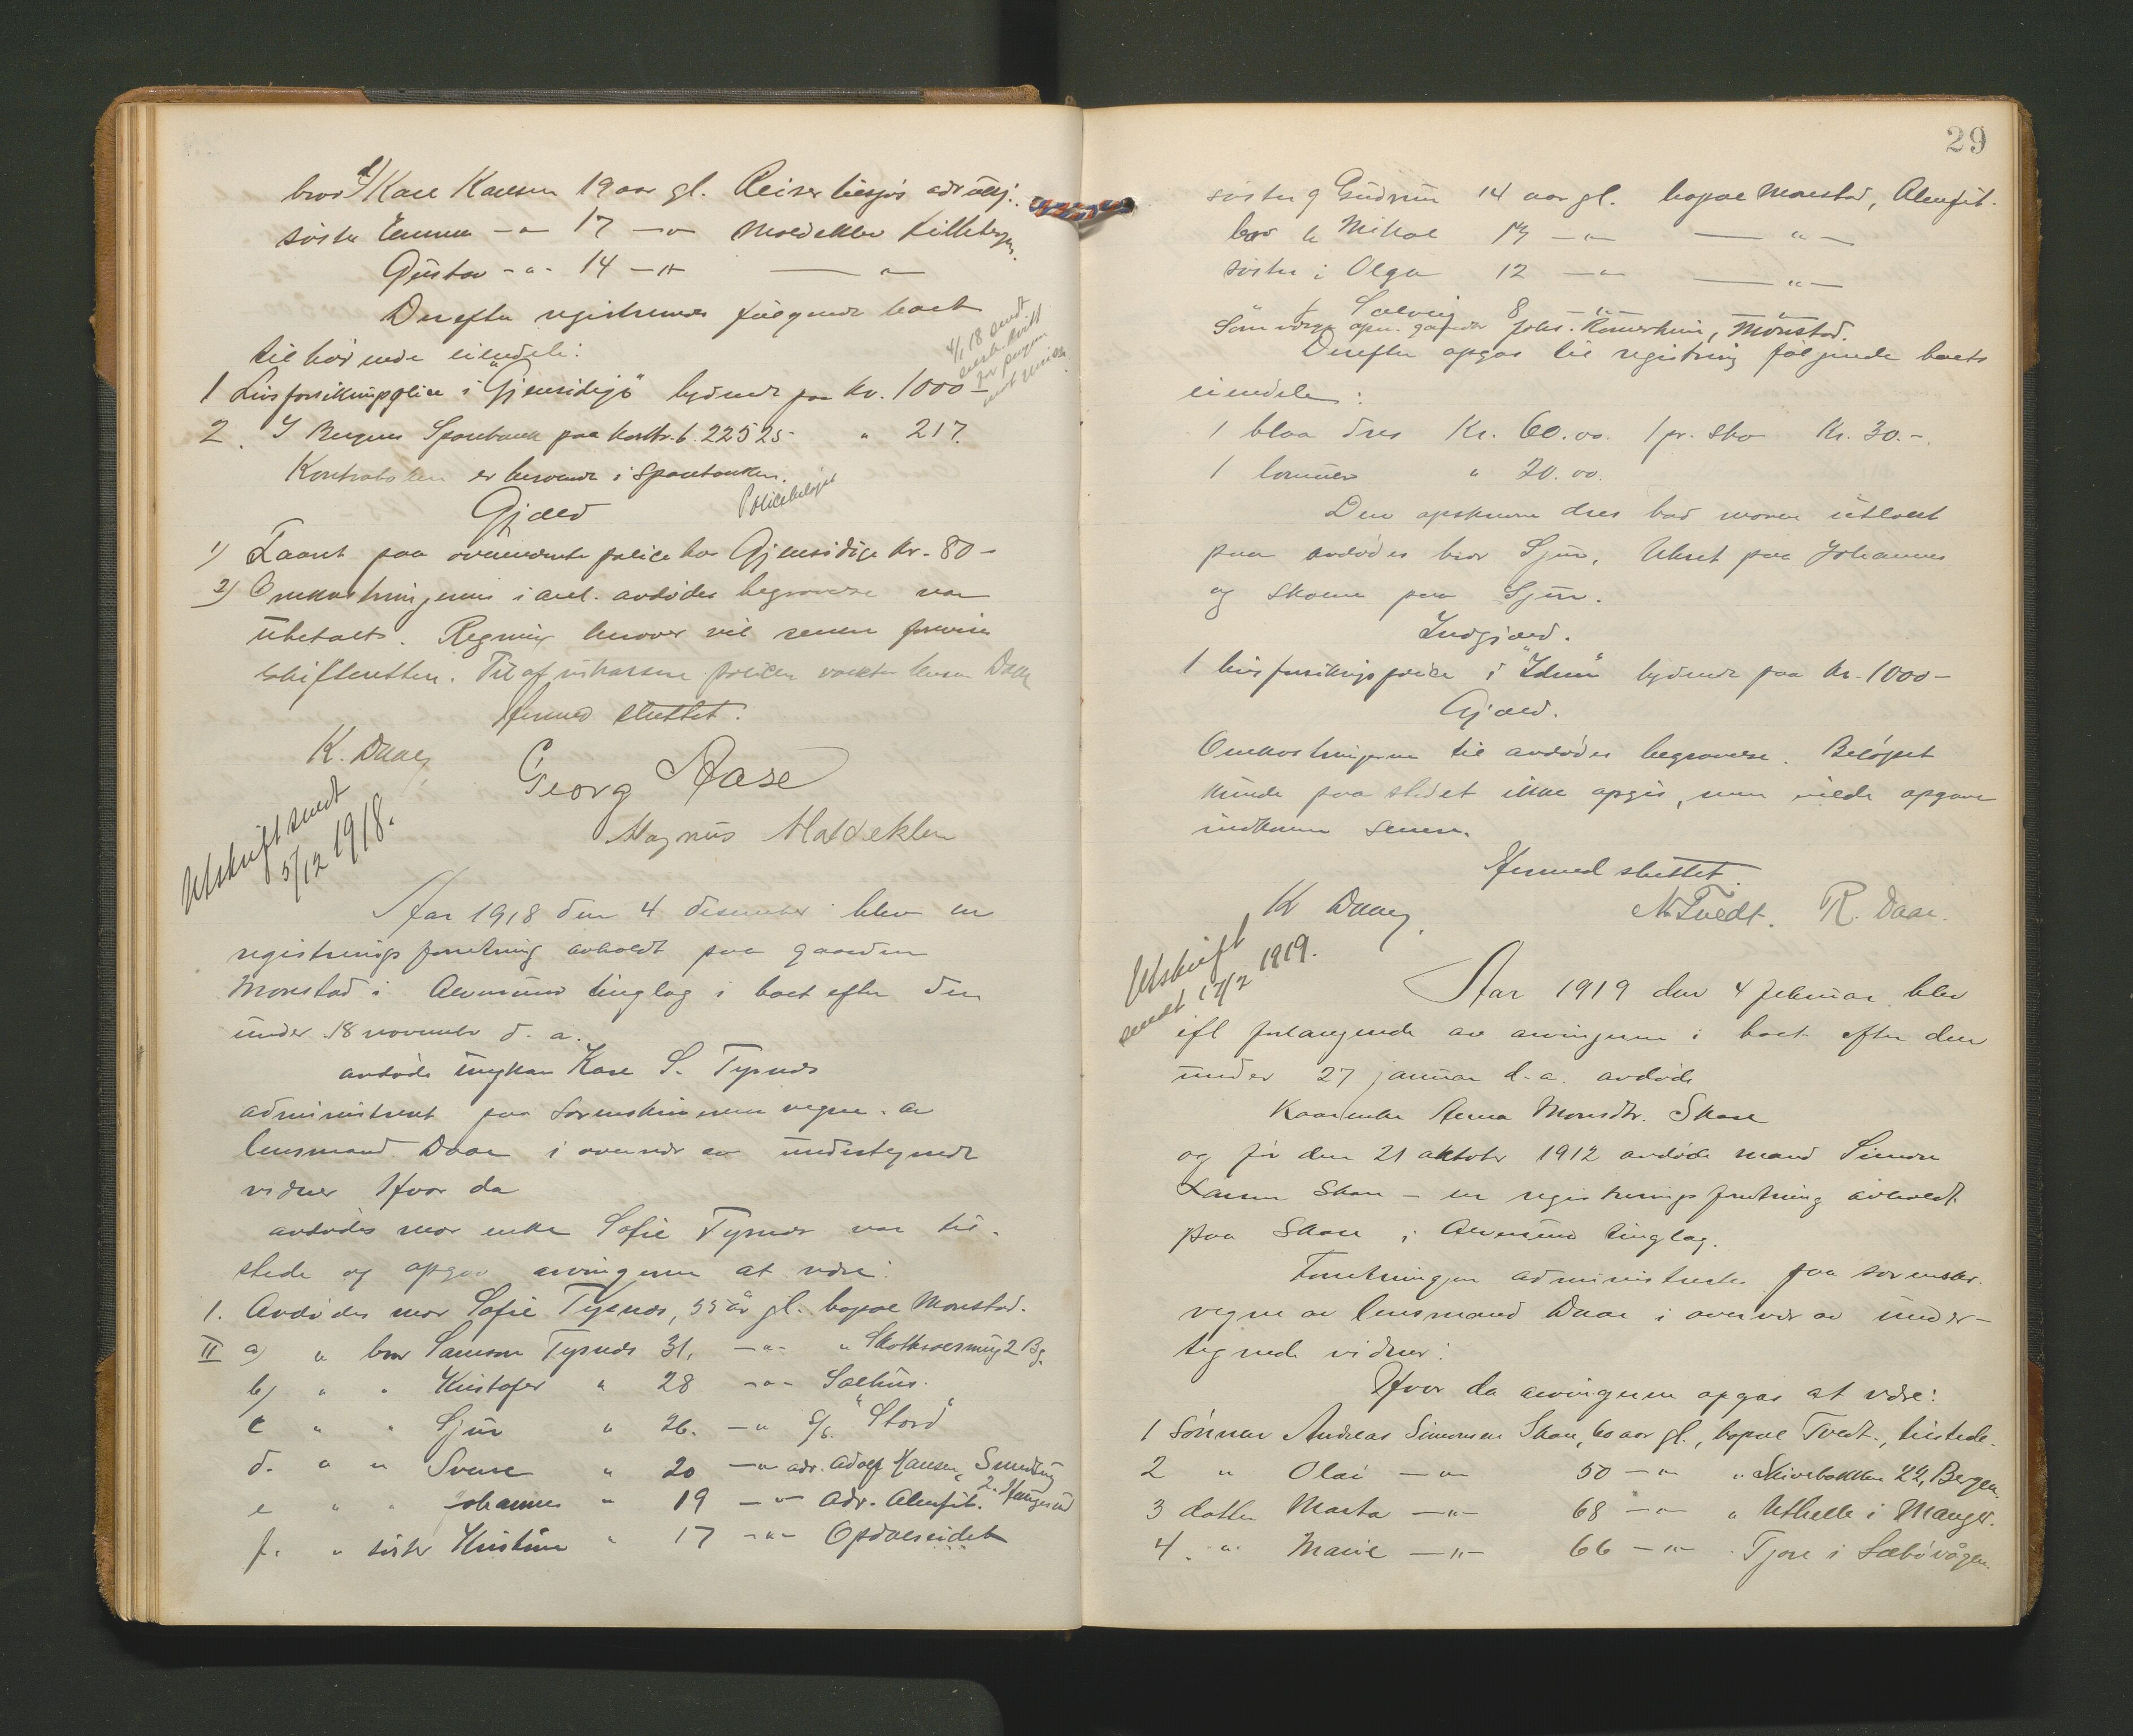 bror d/ Karl Karlsen 19 aar gl. Reiser tilsjøs adr utsj.
søster Emma -"- 17 -"- Moldeklev Lillebergen.
Gustav -"- 14 -"- — " —
Derefter registreredes følgende boet
tilhørende eiendele:
4/1 18 sendt
1 Livsforsikringspolice i "Gjensidige" lydende paa Kr. 1000 –
2. I Bergens Sparebank paa kontr. b. 22525 " 217.
Kontraboken er beroende i Sparebanken.
Policebeløpet
Gjæld
1) Laant paa ovennevnte police hos Gjensidige Kr. 80 –
2) Omkostningerne i anl. avdødes begravelse var
ubetalt. Regning herover vil senere forevises
skifteretten. Til at inkassere policen valgtes Daae
Hermed sluttet.
K. Daae
Georg Aase
Magnus Moldeklev
Utskrift sendt
5/12 1918.
Aar 1918 den 4 desember blev en
registreringsforretning avholdt paa gaarden
Monstad i Alversund tinglag i boet efter den
under 18 november d. a.
avdøde ungkar Karl S. Tysnes
administrert paa Sorenskriverens vegne av
lensmand Daae i overvær av undertegnede
vidner Hvor da
avdødes mor enke Sofie Tysnes var til-
stede og opgav arvingerne at være:
1. Avdødes mor Sofie Tysnes, 55 år gl. bopæl Monstad.
II a) " bror Samson Tysnes 31, -"- " Skottesmug 2 Bg.
b) " " Kristofer " 28 -"- Salhus.
c " " Sjur " 26. -"- D/S. "Stord"
d. " " Sverre " 20 -"- adr. Adolf Hansen, Smedsung
2. Haugesund
e " " Johannes " 19 -"- Adr. Alenfit.
f. " søster Kristine " 17 -"- Opdalseidet
29
søster g Gudrun 14 aar gl. bopæl Monstad, Alenfit.
bror h Mikal 14 -"- — " —
søster i Olga 12 -"- — " —
j Solveig 8 -"- — " —
Som verge opn. gaardbr Johs. Monstad.
Derefter opgas til registrering følgende boets
eiendele:
1 blaa dres Kr. 60.00. 1 pr. sko Kr. 30.–
1 lommeur " 20.00.
Den opskrevne dres bad moren utlagt
paa avdødes bror Sjur, Uhret paa Johannes
og skoene paa Sjur.
Indgjæld.
1 livsforsikringspolice i "Idun" lydende paa Kr. 1000 –
Gjæld.
Omkostningerne til avdødes begravelse. Beløpet
kunde paa stedet ikke opgis, men vilde opgave
indkomme senere.
Hermed sluttet.
K Daae.
N Tvedt. R. Daae.
Utskrift
sendt 17/2 1919.
Aar 1919 den 4 februar blev
efl forlangende av arvingerne i boet efter den
under 27 januar d. a. avdøde
Kaarenke Anna Monsdtr. Skare
og før den 21 oktober 1912 avdøde mand Simon
Larsen Skare – en registreringsforretning avholdt
paa Skare i Alversund tinglag.
Forretningen administrertes paa sorenskr.
vegne av lensmand Daae i overvær av under-
tegnede vidner:
Hvor da arvingerne opgas at være:
1 Sønnen Andreas Simonsen Skare, 60 aar gl., bopæl Tvedt., tilstede.
2 " Olai -"- 50 -"- " Skivebakken 22, Bergen.
3 datter Marta -"- 68 -"- " Uthelle i Manger.
4. " Marie -"- 66 -"- Tjore i Sæbøvågen.